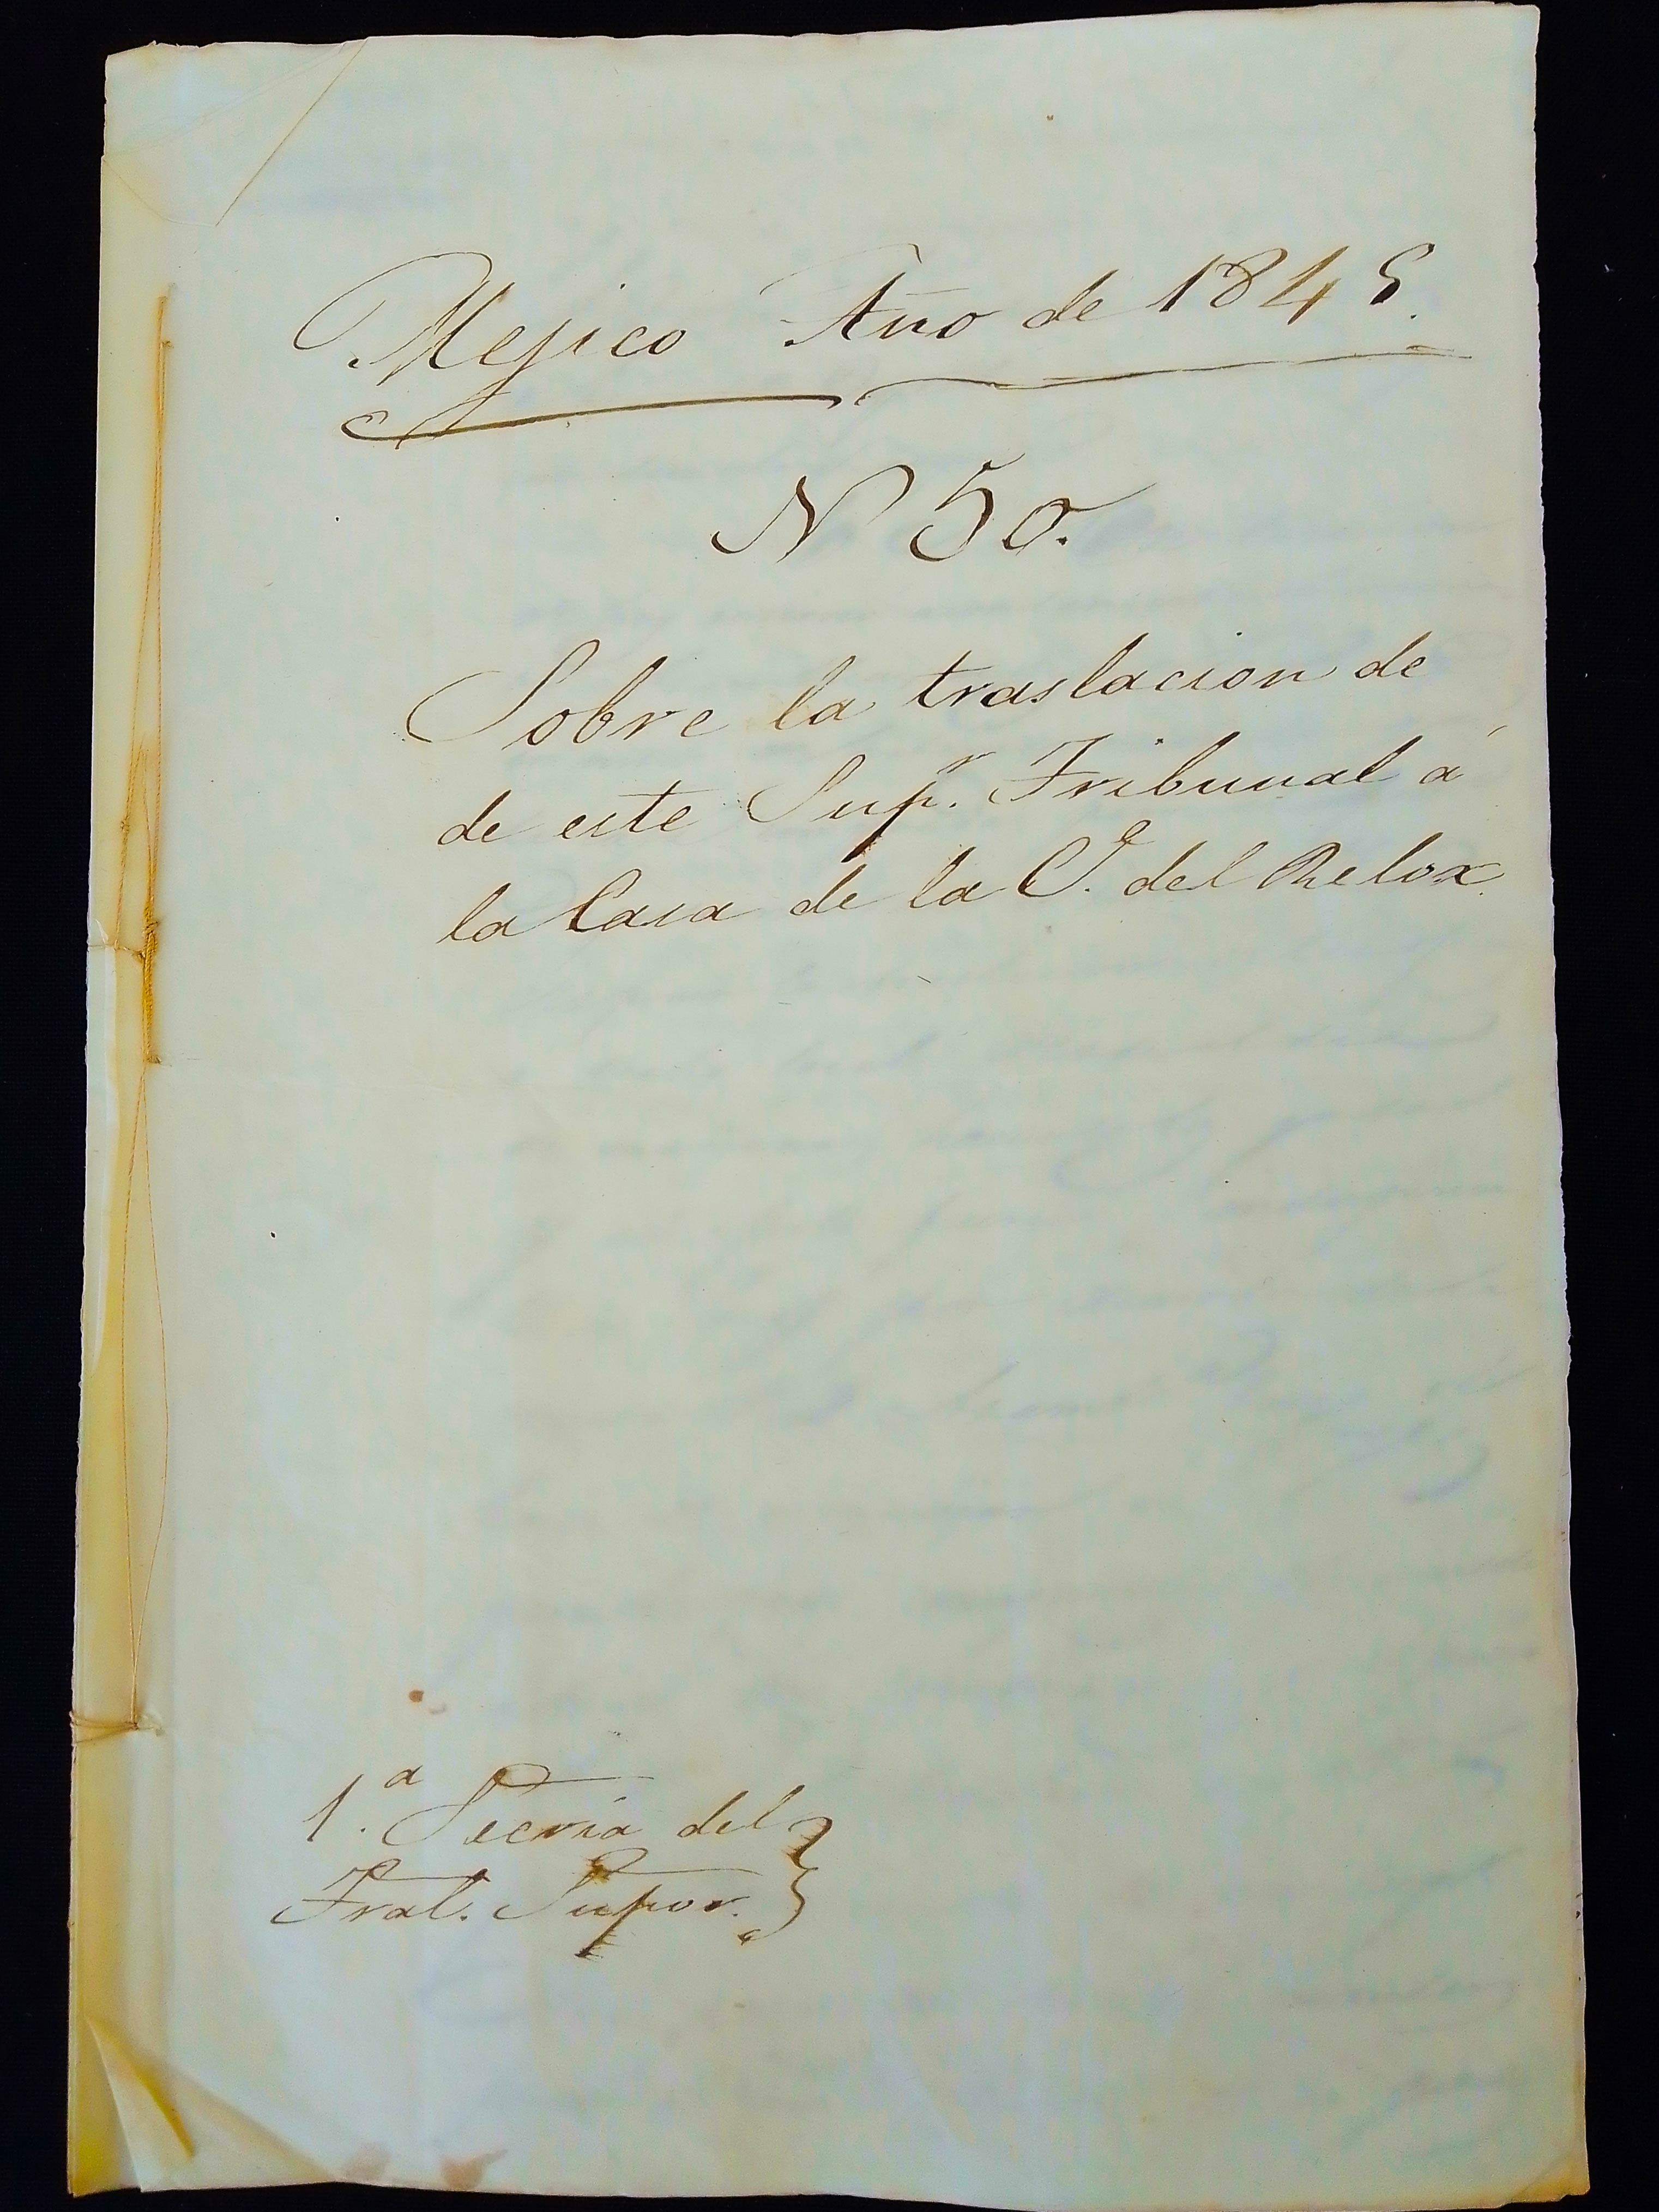 Mejico Año de 1845.
N 50.
Sobre la traslacion de
de este Sup.r Tribunal á
la Casa de la C.e del Relox.
1.a Secría del
Tral. Supor.